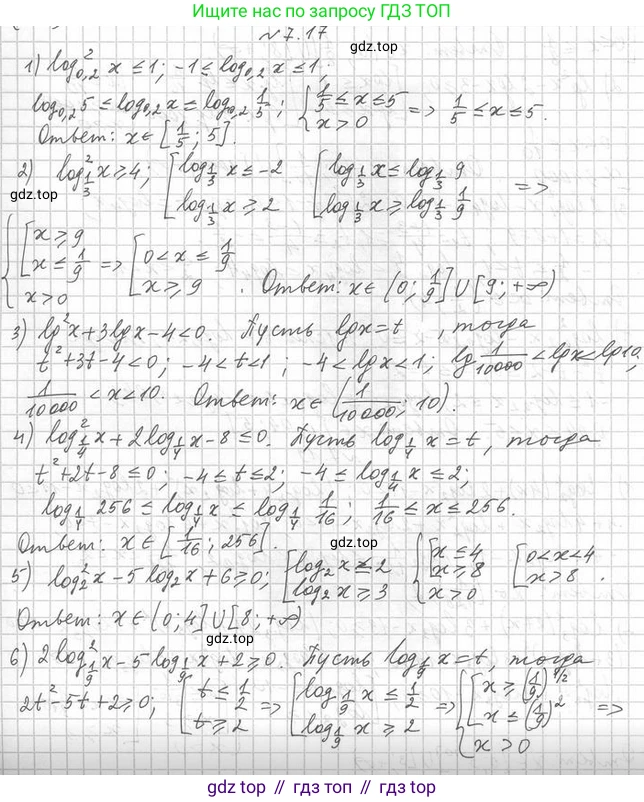 Ищите нас по запросу ГДЗ ТОП
№7.17
1) log²_{0,2} x ≤ 1; -1 ≤ log_{0,2} x ≤ 1;
log_{0,2} 5 ≤ log_{0,2} x ≤ log_{0,2} 1/5; { 1/5 ≤ x ≤ 5 x > 0 => 1/5 ≤ x ≤ 5.
Ответ: x ∈ [1/5; 5].
2) log²_{1/3} x ≥ 4; [ log_{1/3} x ≤ -2 log_{1/3} x ≥ 2 [ log_{1/3} x ≤ log_{1/3} 9 log_{1/3} x ≥ log_{1/3} 1/9 =>
gdz top
{ [ x ≥ 9 x ≤ 1/9 x > 0 => [ 0 < x ≤ 1/9 x ≥ 9 . Ответ: x ∈ (0; 1/9] ∪ [9; +∞)
3) lg²x + 3lgx - 4 < 0. Пусть lgx = t, тогда
t² + 3t - 4 < 0; -4 < t < 1; -4 < lgx < 1; lg 1/10000 < lgx < lg10;
1/10000 < x < 10. Ответ: x ∈ (1/10000; 10).
4) log²_{1/4} x + 2log_{1/4} x - 8 ≤ 0. Пусть log_{1/4} x = t, тогда
t² + 2t - 8 ≤ 0; -4 ≤ t ≤ 2; -4 ≤ log_{1/4} x ≤ 2;
log_{1/4} 256 ≤ log_{1/4} x ≤ log_{1/4} 1/16; 1/16 ≤ x ≤ 256.
Ответ: x ∈ [1/16; 256].
gdz top
5) log²_2 x - 5log_2 x + 6 ≥ 0; [ log_2 x ≤ 2 log_2 x ≥ 3 { [ x ≤ 4 x ≥ 8 x > 0 [ 0 < x < 4 x > 8 .
Ответ: x ∈ (0; 4] ∪ [8; +∞)
gdz top
6) 2log²_{1/9} x - 5log_{1/9} x + 2 ≥ 0. Пусть log_{1/9} x = t, тогда
2t² - 5t + 2 ≥ 0; [ t ≤ 1/2 t ≥ 2 => [ log_{1/9} x ≤ 1/2 log_{1/9} x ≥ 2 => { [ x ≥ (1/9)^{1/2} x ≤ (1/9)² x > 0 =>
gdz top // гдз топ // gdz.top